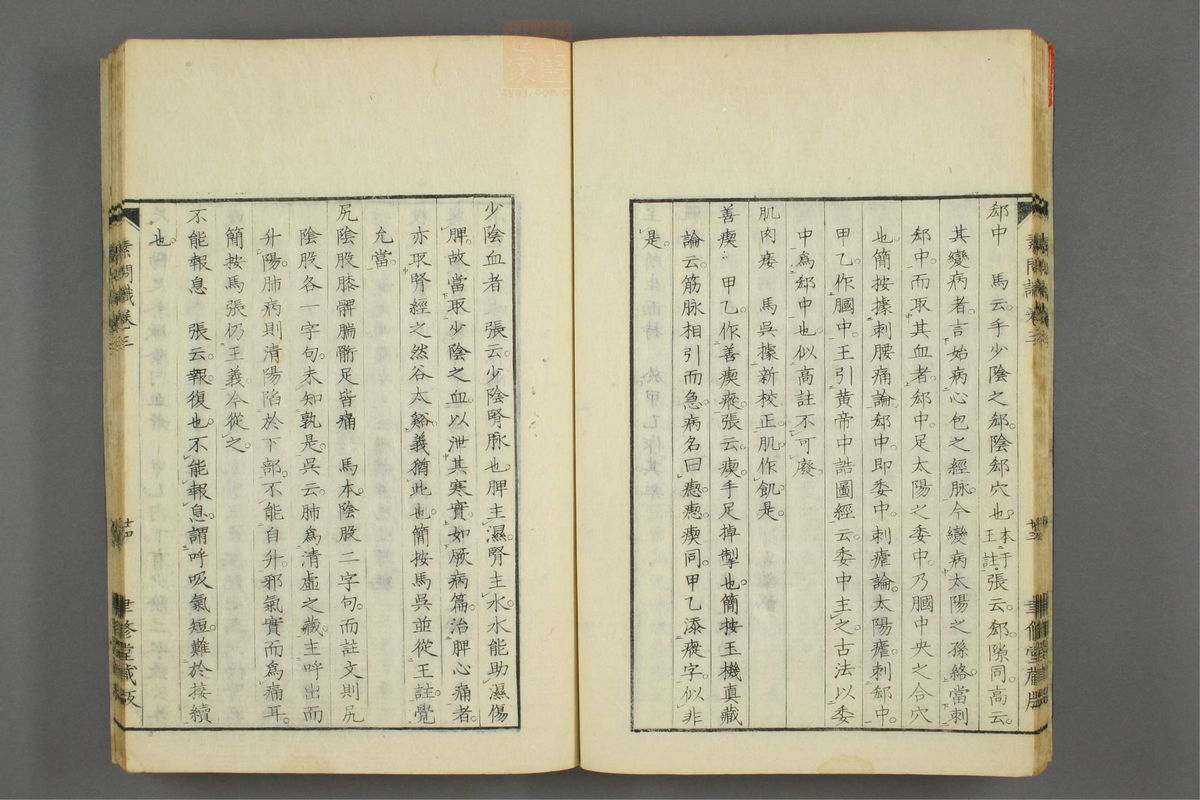 郄中　馬云。手少陰之郄陰郄穴也。本于王註。張云。郄隙同。高云。
其變病者。言始病心包之經脉。今變病太陽之孫絡。當刺
郄中。而取其血者。郄中。足太陽之委中。乃膕中央之合穴
也。簡按據刺腰痛論。郄中。即委中。刺瘧論。太陽瘧。刺郄中。
甲乙作膕中。王引黃帝中誥圖經云。委中主之。古法以委
中爲郄中也。似高註不可廢。
肌肉痿　馬吳據新校正。肌作飢。是。
善瘈　甲乙。作善瘈瘲。張云。瘈。手足掉掣也。簡按玉機真藏
論云。筋脉相引而急。病名曰瘛。瘛瘈同。甲乙添瘲字。似非
是。
素問識卷三
聿修堂藏版
少陰血者　張云。少陰腎脉也。脾主濕。腎主水。水能助濕傷
脾。故當取少陰之血。以泄其寒實。如厥病篇。治脾心痛者。
亦取腎經之然谷太谿。義猶此也。簡按馬吳並從王註。覺
允當。
尻陰股膝髀腨胻足皆痛　馬本。陰股二字句。而註文則尻
陰股各一字句。未知孰是。吳云。肺爲清虛之藏。主呼出而
升陽。肺病則清陽陷於下部。不能自升。邪氣實而爲痛耳。
簡按馬張仍王義。今從之。
不能報息　張云。報。復也。不能報息。謂呼吸氣短。難於接續
也。
素問識卷三
廿四
聿修堂藏版